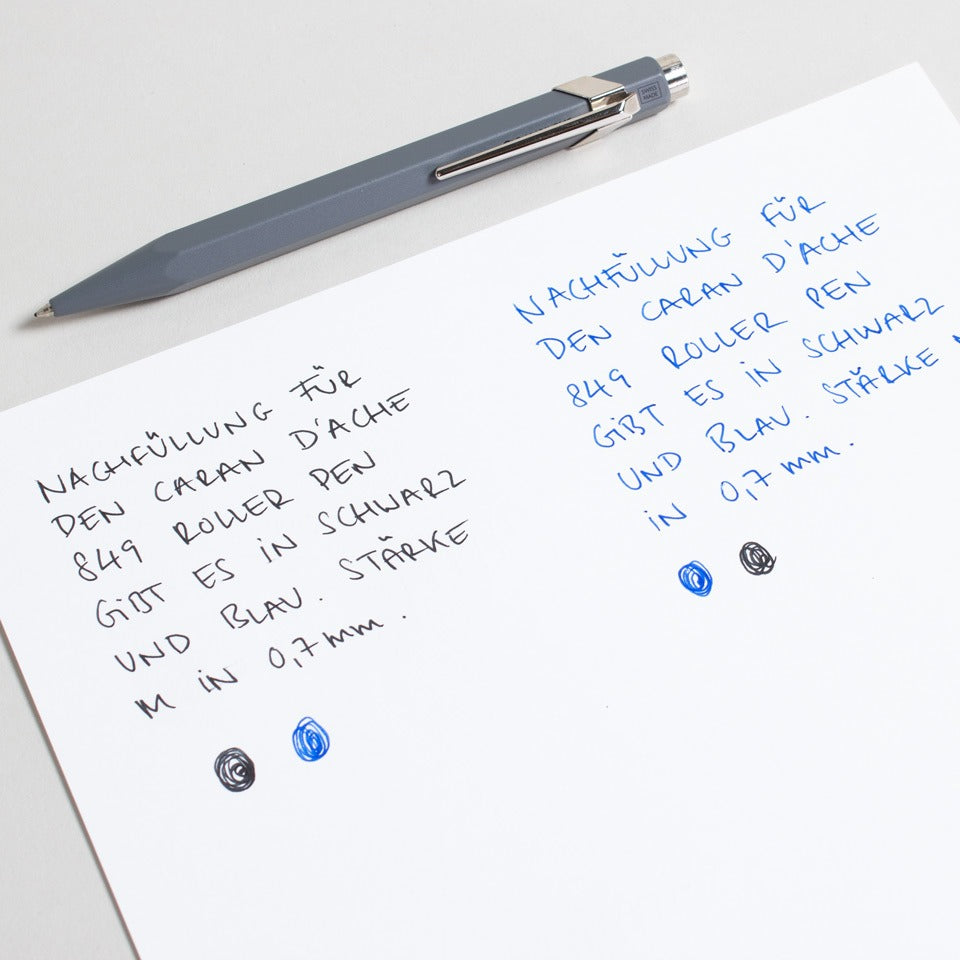 SWISS
MADE
NACHFÜLLUNG FÜR
DEN CARAN D'ACHE
849 ROLLER PEN
GIBT ES IN SCHWARZ
UND BLAU. STÄRKE
M IN 0,7mm.
NACHFÜLLUNG FÜR
DEN CARAN D'ACHE
849 ROLLER PEN
GIBT ES IN SCHWARZ
UND BLAU. STÄRKE
IN 0,7mm.